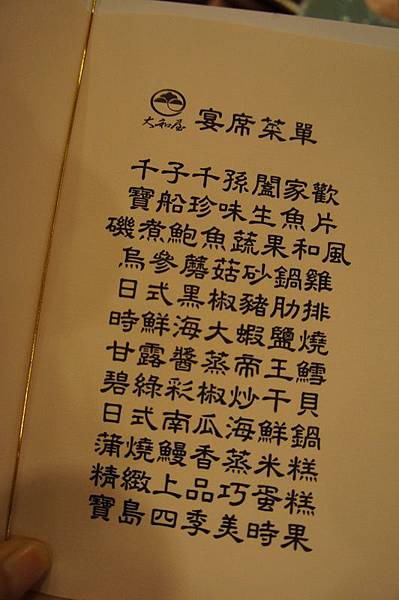 大和屋 宴席菜單
千子千孫闔家歡
寶船珍味生魚片
磯煮鮑魚蔬果和風
烏參蘑菇砂鍋雞
日式黑椒豬肋排
時鮮海大蝦鹽燒
甘露醬蒸帝王鱈
碧綠彩椒炒干貝
日式南瓜海鮮鍋
蒲燒鰻香蒸米糕
精緻上品巧蛋糕
寶島四季美時果